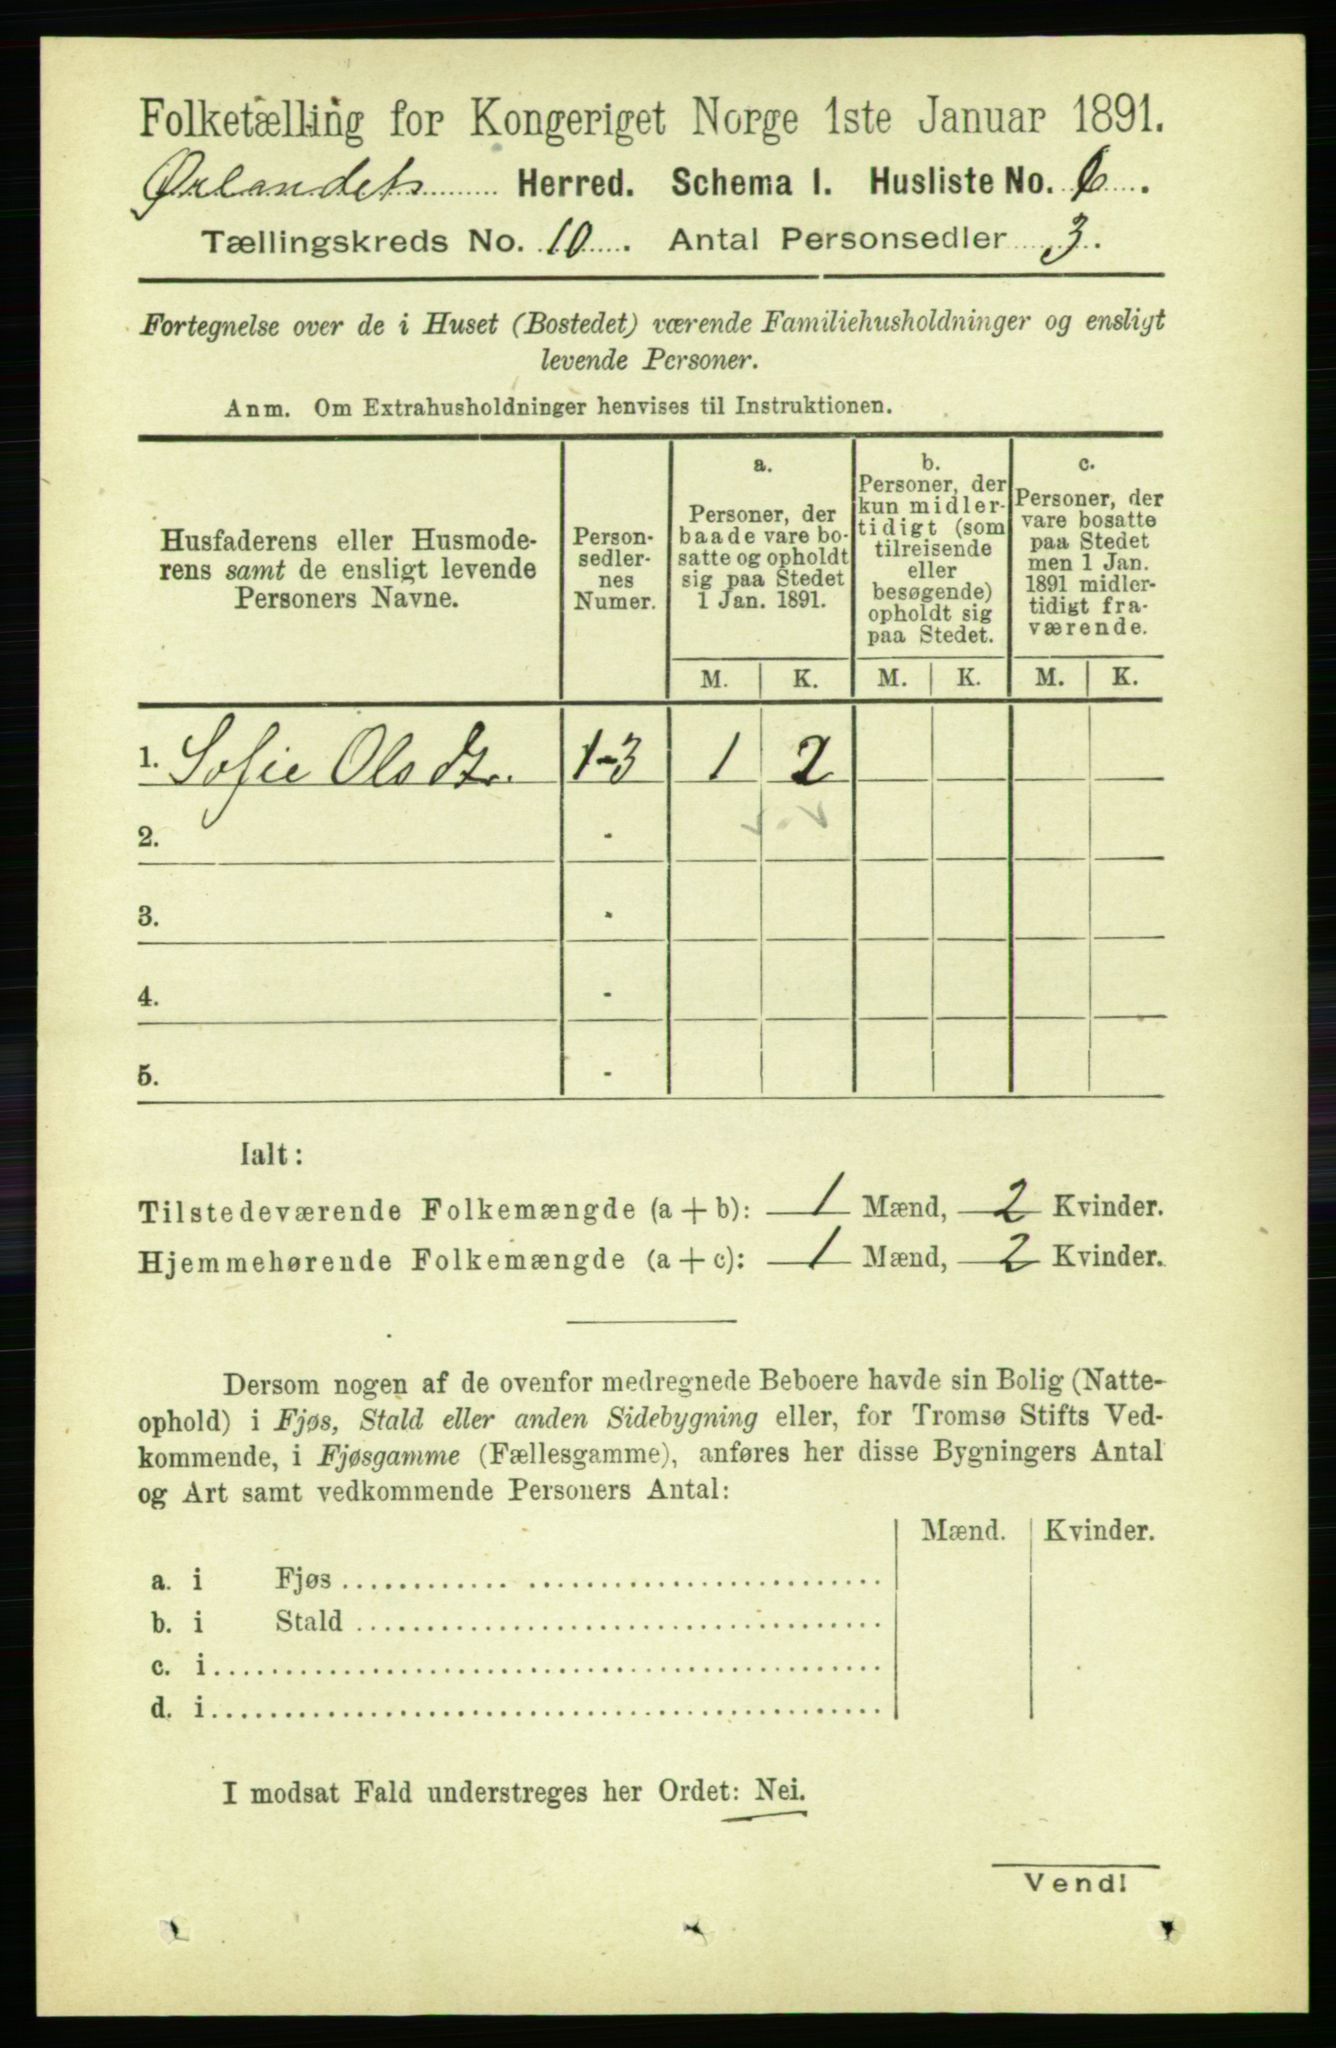 Folketælling for Kongeriget Norge 1ste Januar 1891.
Ørlandets Herred. Schema I. Husliste No. 6.
Tællingskreds No. 10. Antal Personsedler 3.
Fortegnelse over de i Huset (Bostedet) værende Familiehusholdninger og ensligt
levende Personer.
Anm. Om Extrahusholdninger henvises til Instruktionen.
Husfaderens eller Husmode-
rens samt de ensligt levende
Personers Navne.
Person-
sedler-
nes
Numer.
a.
Personer, der
baade vare bo-
satte og opholdt
sig paa Stedet
1 Jan. 1891.
b.
Personer, der
kun midler-
tidigt (som
tilreisende
eller
besøgende)
opholdt sig
paa Stedet.
c.
Personer, der
vare bosatte
paa Stedet
men 1 Jan.
1891 midler-
tidigt fra-
værende.
M. K. M. K. M. K.
1. Sofie Olsdtr. 1-3 1 2
2. -
3. -
4. -
5. -
Ialt:
Tilstedeværende Folkemængde (a + b): 1 Mænd, 2 Kvinder.
Hjemmehørende Folkemængde (a + c): 1 Mænd, 2 Kvinder.
Dersom nogen af de ovenfor medregnede Beboere havde sin Bolig (Natte-
ophold) i Fjøs, Stald eller anden Sidebygning eller, for Tromsø Stifts Ved-
kommende, i Fjøsgamme (Fællesgamme), anføres her disse Bygningers Antal
og Art samt vedkommende Personers Antal:
Mænd. Kvinder.
a. i Fjøs
b. i Stald
c. i
d. i
I modsat Fald understreges her Ordet: Nei.
Vend!